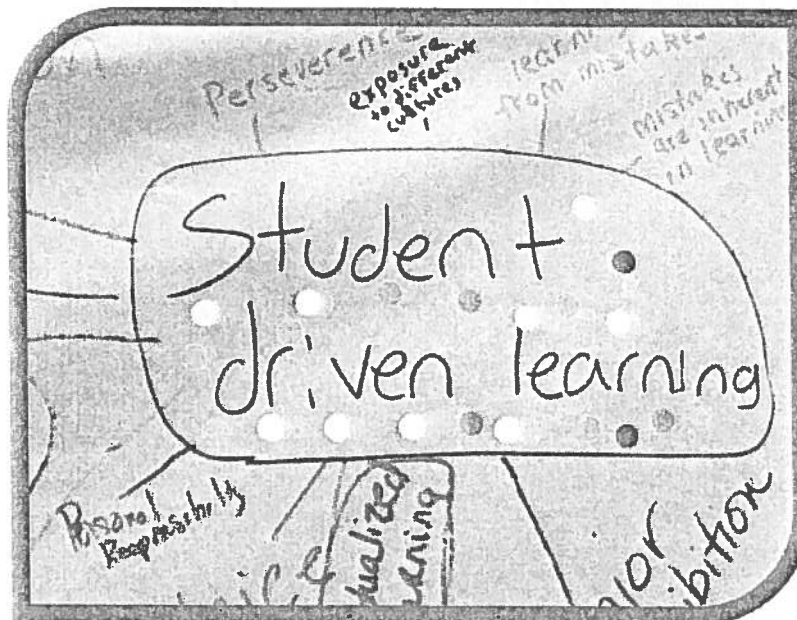 Perseverence
exposure
to different
cultures
learn
from mistakes
mistakes
are inherent
in learnin
Student
driven learning
Personal
Responsibility
oice
ualized
arning
ior
ibition